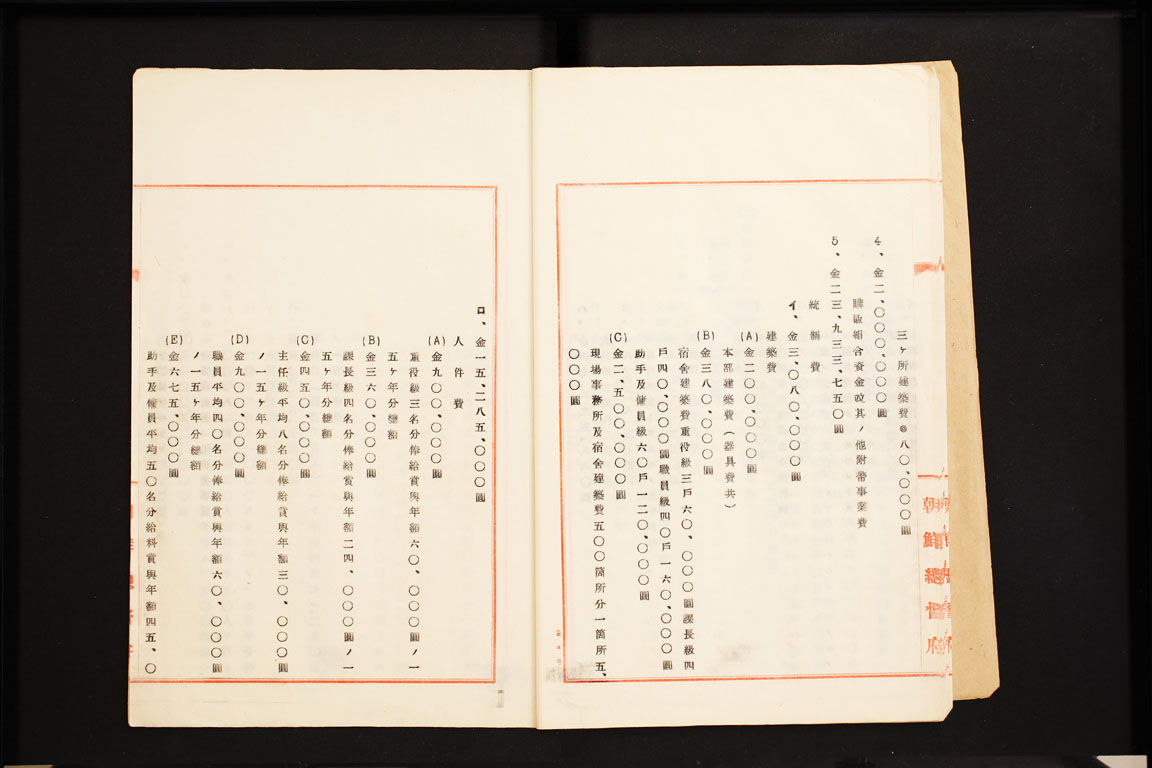 三ヶ所建築費@八〇、〇〇〇圓
4、金二、〇〇〇、〇〇〇圓
購販組合資金或其ノ他附帶事業費
5、金二三、九三三、七五〇圓
統制費
イ、金三、〇八〇、〇〇〇圓
建築費
(A)金二〇〇、〇〇〇圓
本部建築費(器具費共)
(B)金三八〇、〇〇〇圓
宿舍建築費重役級三戶六〇、〇〇〇圓課長級四
戶四〇、〇〇〇圓職員級四〇戶一六〇、〇〇〇圓
助手及傭員級六〇戶一二〇、〇〇〇圓
(C)金二、五〇〇、〇〇〇圓
現場事務所及宿舍建築費五〇〇箇所分一箇所五、
〇〇〇圓
朝鮮總督府
ロ、金一五、二八五、〇〇〇圓
人件費
(A)金九〇〇、〇〇〇圓
重役級三名分俸給賞與年額六〇、〇〇〇圓ノ一
五ヶ年分總額
(B)金三六〇、〇〇〇圓
課長級四名分俸給賞與年額二四、〇〇〇圓ノ一
五ヶ年分總額
(C)金四五〇、〇〇〇圓
主任級平均八名分俸給賞與年額三〇、〇〇〇圓
ノ一五ヶ年分總額
(D)金九〇〇、〇〇〇圓
職員平均四〇名分俸給賞與年額六〇、〇〇〇圓
ノ一五ヶ年分總額
(E)金六七五、〇〇〇圓
助手及傭員平均五〇名分給料賞與年額四五、〇